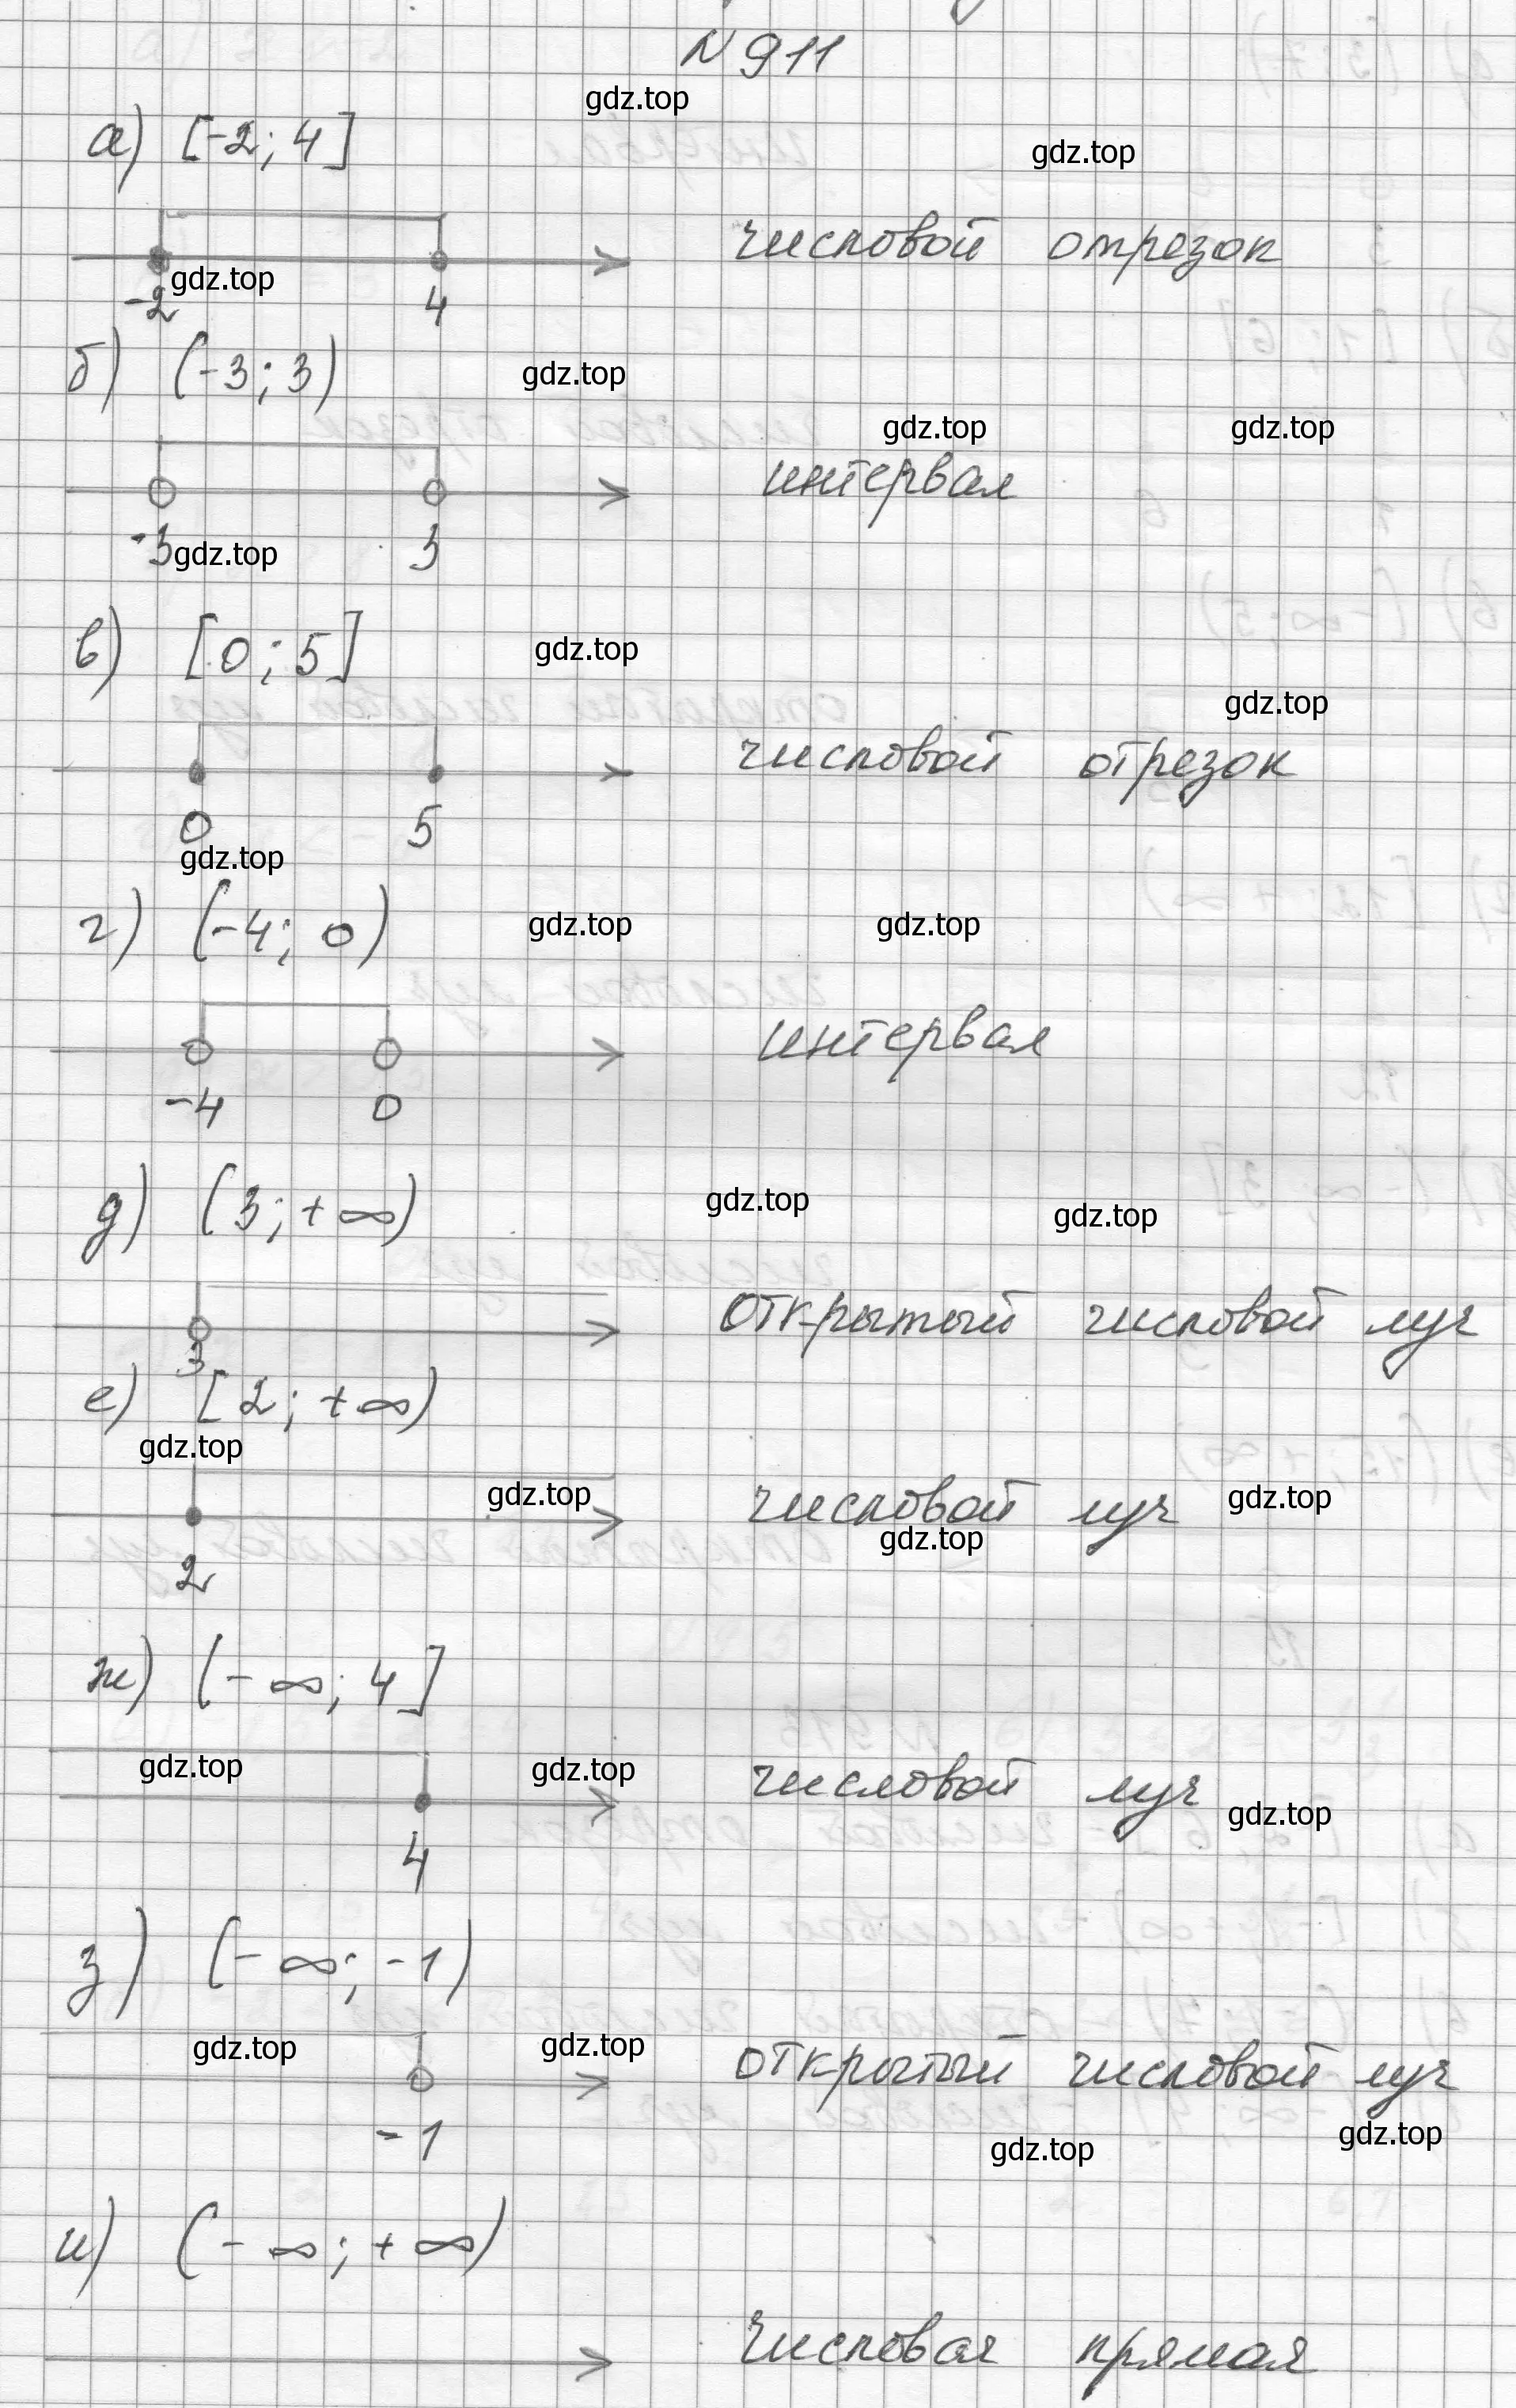 N 911
gdz.top
а) [-2; 4]
gdz.top
числовой отрезок
gdz.top
-2 4
б) (-3; 3)
gdz.top
gdz.top gdz.top
интервал
-3 3
gdz.top
в) [0; 5]
gdz.top
gdz.top
числовой отрезок
0 5
gdz.top
г) (-4; 0)
gdz.top gdz.top
интервал
-4 0
д) (3; +∞)
gdz.top gdz.top
открытый числовой луч
3
е) [2; +∞)
gdz.top
gdz.top gdz.top
числовой луч
gdz.top
2
ж) (-∞; 4]
gdz.top gdz.top
числовой луч
gdz.top
4
з) (-∞; -1)
gdz.top gdz.top
открытый числовой луч
-1
gdz.top gdz.top
и) (-∞; +∞)
числовая прямая